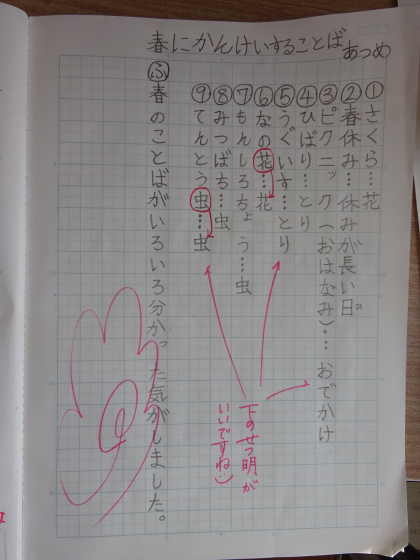 春にかんけいすることばあつめ
①さくら…花
②春休み…休みが長い日
③ピクニック(おはなみ)…おでかけ
④ひばり…とり
⑤うぐいす…とり
⑥なの花…花
⑦もんしろちょう…虫
⑧みつばち…虫
⑨てんとう虫…虫
ふ春のことばがいろいろ分かった気がしました。
下のせつ明が
いいですね:)